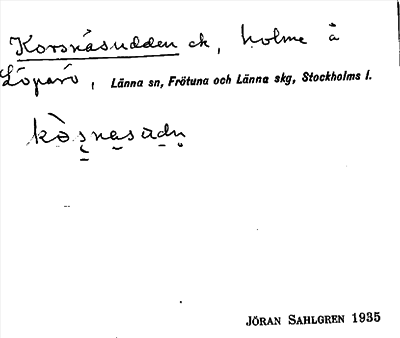 Korsnäsudden ck, holme å
Löparö, Länna sn, Frötuna och Länna skg, Stockholms l.
kòsnasudn
JÖRAN SAHLGREN 1935